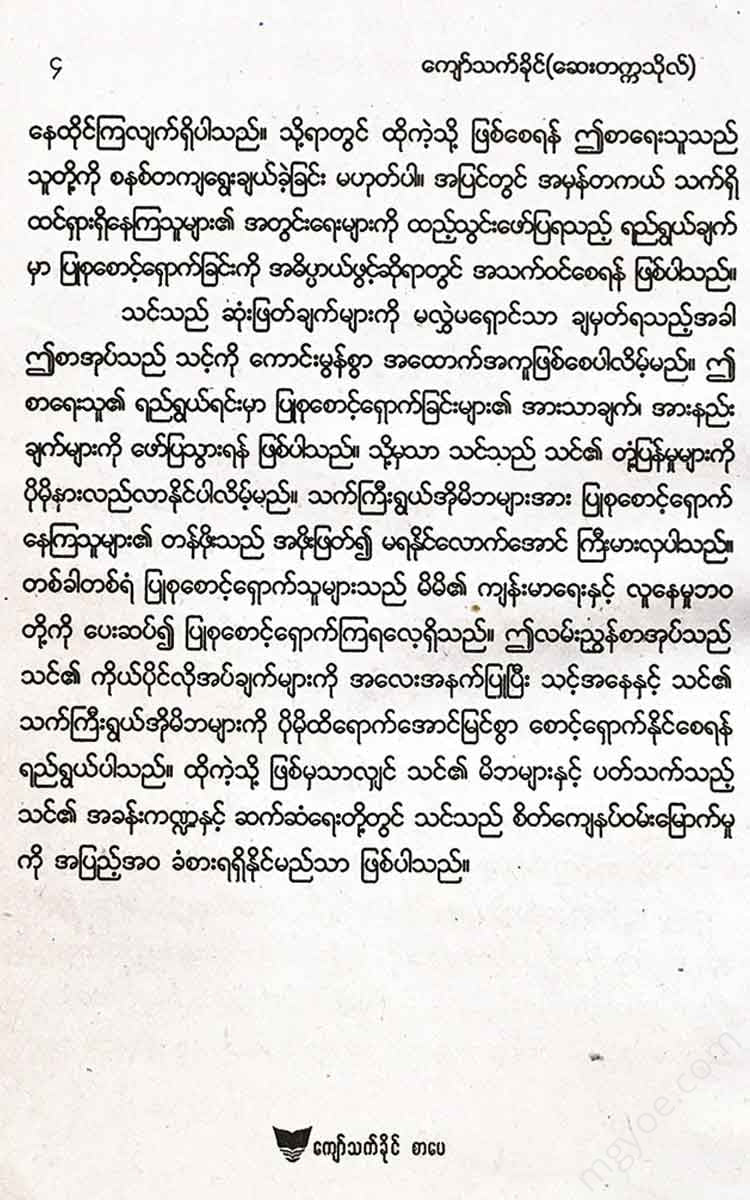 ၄ ကျော်သက်ခိုင်(ဆေးတက္ကသိုလ်)
နေထိုင်ကြလျက်ရှိပါသည်။ သို့ရာတွင် ထိုကဲ့သို့ ဖြစ်စေရန် ဤစာရေးသူသည်
သူတို့ကို စနစ်တကျရွေးချယ်ခဲ့ခြင်း မဟုတ်ပါ။ အပြင်တွင် အမှန်တကယ် သက်ရှိ
ထင်ရှားရှိနေကြသူများ၏ အတွင်းရေးများကို ထည့်သွင်းဖော်ပြရသည့် ရည်ရွယ်ချက်
မှာ ပြုစုစောင့်ရှောက်ခြင်းကို အဓိပ္ပာယ်ဖွင့်ဆိုရာတွင် အသက်ဝင်စေရန် ဖြစ်ပါသည်။
သင်သည် ဆုံးဖြတ်ချက်များကို မလွှဲမရှောင်သာ ချမှတ်ရသည့်အခါ
ဤစာအုပ်သည် သင့်ကို ကောင်းမွန်စွာ အထောက်အကူဖြစ်စေပါလိမ့်မည်။ ဤ
စာရေးသူ၏ ရည်ရွယ်ရင်းမှာ ပြုစုစောင့်ရှောက်ခြင်းများ၏ အားသာချက်၊ အားနည်း
ချက်များကို ဖော်ပြသွားရန် ဖြစ်ပါသည်။ သို့မှသာ သင်သည် သင်၏ တုံ့ပြန်မှုများကို
ပိုမိုနားလည်လာနိုင်ပါလိမ့်မည်။ သက်ကြီးရွယ်အိုမိဘများအား ပြုစုစောင့်ရှောက်
နေကြသူများ၏ တန်ဖိုးသည် အဖိုးဖြတ်၍ မရနိုင်လောက်အောင် ကြီးမားလှပါသည်။
တစ်ခါတစ်ရံ ပြုစုစောင့်ရှောက်သူများသည် မိမိ၏ ကျန်းမာရေးနှင့် လူနေမှုဘဝ
တို့ကို ပေးဆပ်၍ ပြုစုစောင့်ရှောက်ကြရလေ့ရှိသည်။ ဤလမ်းညွှန်စာအုပ်သည်
သင်၏ ကိုယ်ပိုင်လိုအပ်ချက်များကို အလေးအနက်ပြုပြီး သင့်အနေနှင့် သင်၏
သက်ကြီးရွယ်အိုမိဘများကို ပိုမိုထိရောက်အောင်မြင်စွာ စောင့်ရှောက်နိုင်စေရန်
ရည်ရွယ်ပါသည်။ ထိုကဲ့သို့ ဖြစ်မှသာလျှင် သင်၏ မိဘများနှင့် ပတ်သက်သည့်
သင်၏ အခန်းကဏ္ဍနှင့် ဆက်ဆံရေးတို့တွင် သင်သည် စိတ်ကျေနပ်ဝမ်းမြောက်မှု
ကို အပြည့်အဝ ခံစားရရှိနိုင်မည်သာ ဖြစ်ပါသည်။
ကျော်သက်ခိုင် စာပေ
mgyoe.com